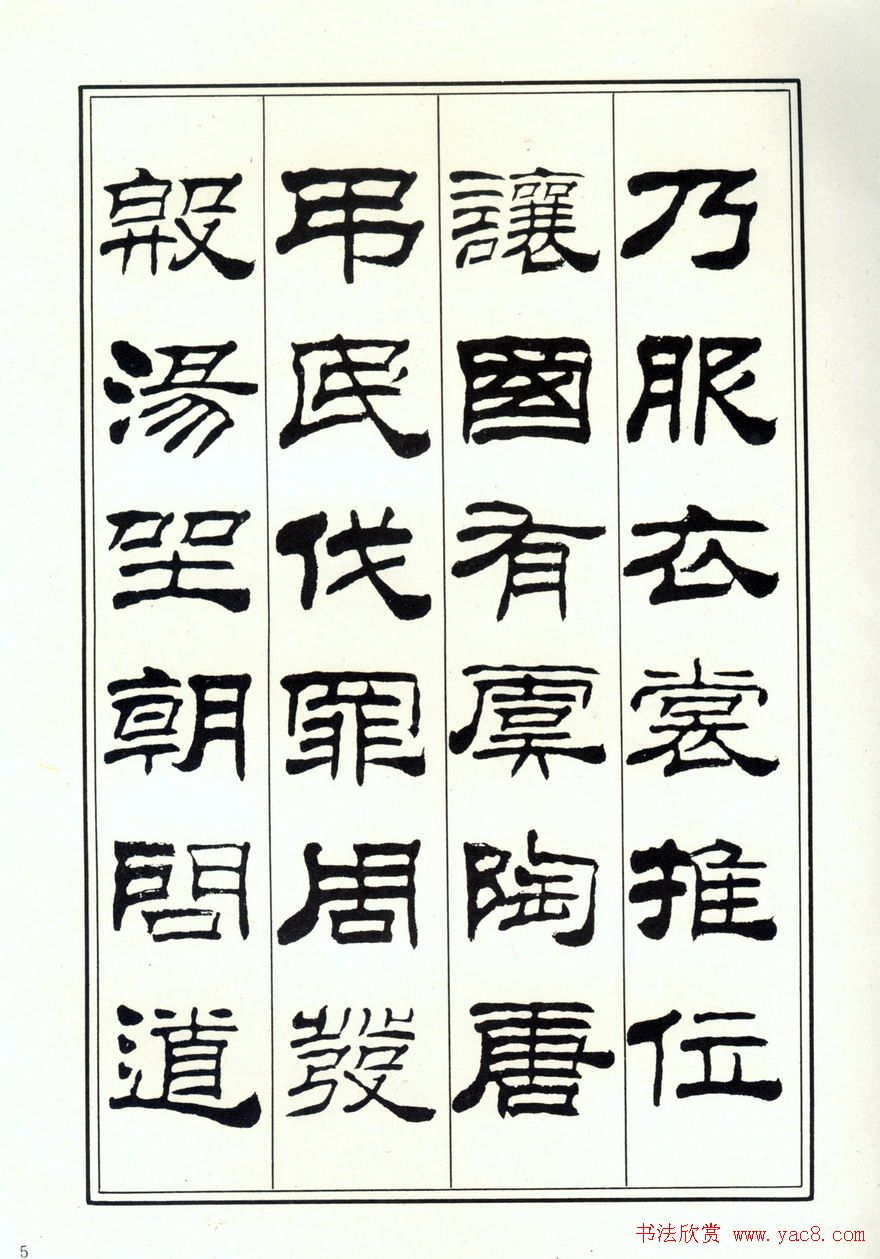 乃服衣裳推位
讓國有虞陶唐
弔民伐罪周發
殷湯坐朝問道
5
书法欣赏 www.yac8.com